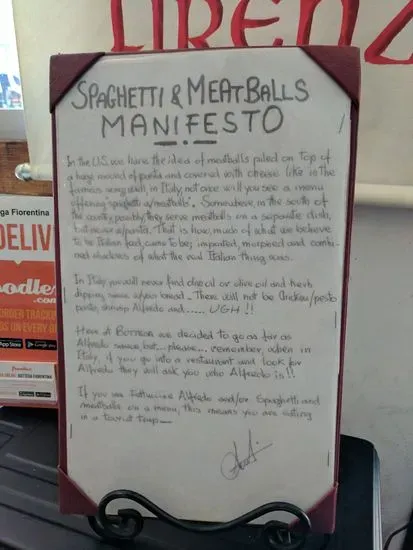 FIRENZ
SPAGHETTI & MEATBALLS
MANIFESTO
In the U.S. we have the idea of meatballs piled on top of
a huge mound of pasta and covered with cheese like in the
famous song, well, in Italy, not once will you see a menu
offering "spaghetti w/meatballs". Somewhere, in the south of
the country, possibly they serve meatballs on a separate dish,
but never w/pasta. That is how, much of what we believe
to be Italian food, came to be; imported, and
shadows of what the real Italian thing was.
In Italy, you will never find olive oil and herb
dipping sauce w/your bread... There will not be chicken/pesto
pasta, shrimp Alfredo and...... UGH!!
Here at Bottega we decided to go as far as
Alfredo sauce, but... please... remember, when in
Italy, if you go into a restaurant and look for
Alfredo they will ask you who Alfredo is!!
If you see Fettuccine Alfredo and/or Spaghetti and
meatballs on a menu, this means you are eating
in a tourist trap
ga Fiorentina
DELIV
oodle
.com
ORDER TRACKING
S ON EVERY
App Store
Google play
BOTTEGA FIORENTINA